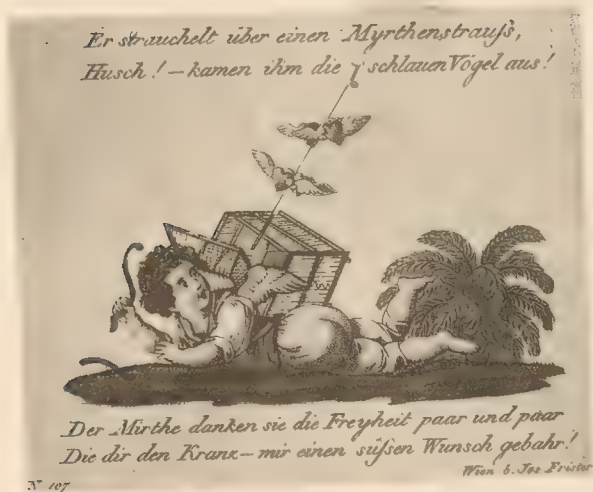 Er strauchelt über einen Myrthenstrauſs,
Husch! – kamen ihm die schlauen Vögel aus!
Der Mirthe danken sie die Freyheit paar und paar
Die dir den Kranz – mir einen süſsen Wunsch gebahr!
Wien b. Jos. Frister
N 107